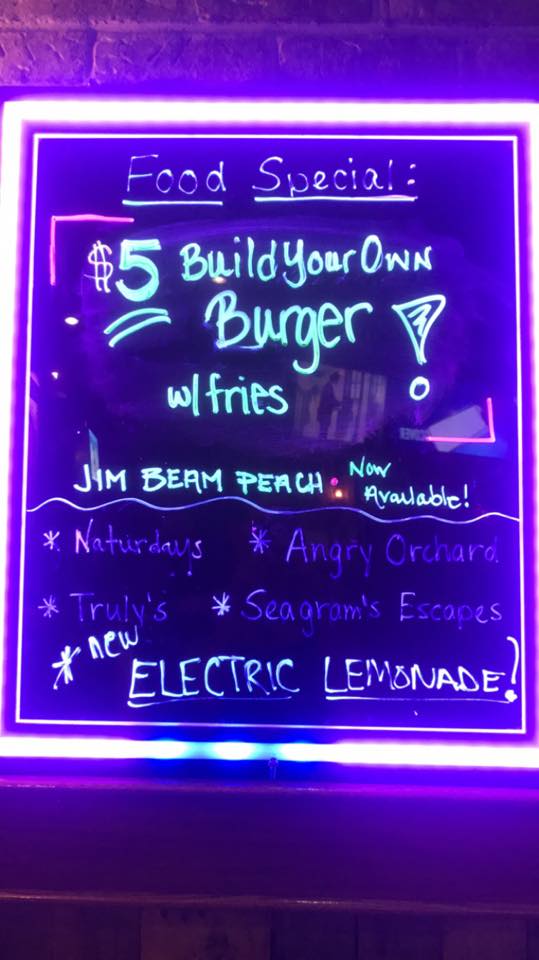 Food Special:
$5 Build Your Own
Burger!
w/ fries
JIM BEAM PEACH. Now
Available!
* Naturdays * Angry Orchard
* Truly's * Seagram's Escapes
* new
ELECTRIC LEMONADE!